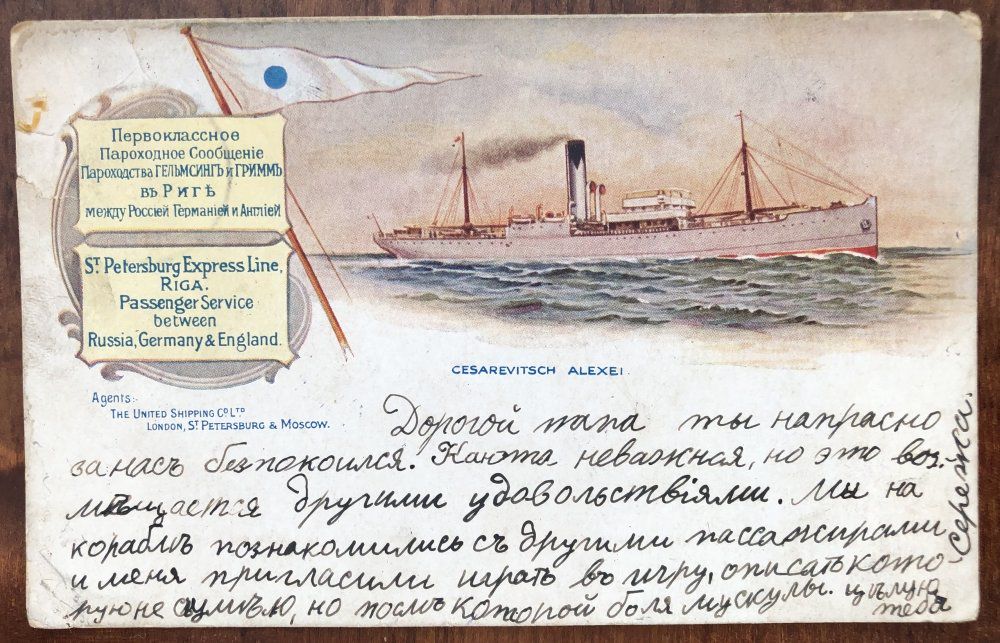 Первоклассное
Пароходное Сообщеніе
Пароходства ГЕЛЬМСИНГЪ и ГРИММЪ
въ Ригѣ
между Россіей Германіей и Англіей
ST. Petersburg Express Line,
RIGA.
Passenger Service
between
Russia, Germany & England.
Agents:-
THE UNITED SHIPPING CO. LTD
LONDON, ST. PETERSBURG & MOSCOW.
CESAREVITSCH ALEXEI.
Дорогой папа ты напрасно
за насъ безпокоился. Каюта неважная, но это воз-
мѣщается другими удовольствіями. Мы на
кораблѣ познакомились съ другими пассажирами
и меня пригласили играть въ игру, описать кото-
рую не сумѣю, но послѣ которой боля мускулы. цѣлую
тебя
Сережа.